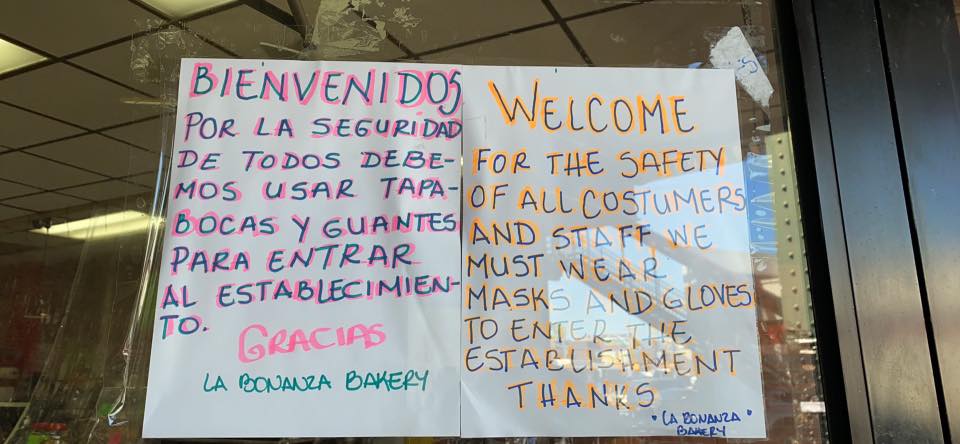 BIENVENIDOS
POR LA SEGURIDAD
DE TODOS DEBE-
MOS USAR TAPA-
BOCAS Y GUANTES
PARA ENTRAR
AL ESTABLECIMIEN-
TO.
GRACIAS
LA BONANZA BAKERY
WELCOME
FOR THE SAFETY
OF ALL COSTUMERS
AND STAFF WE
MUST WEAR
MASKS AND GLOVES
TO ENTER THE
ESTABLISHMENT
THANKS
• LA BONANZA •
BAKERY